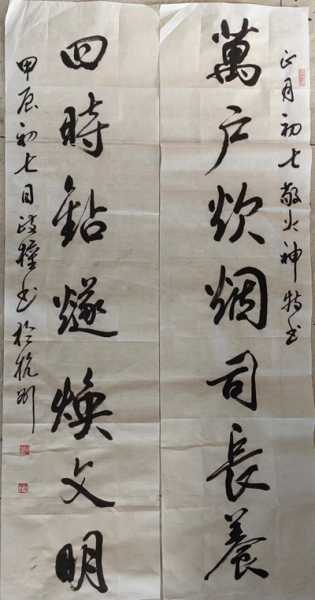 正月初七敬火神特书
萬戶炊烟司長養
四時鉆燧煥文明
甲辰初七日政书於杭州